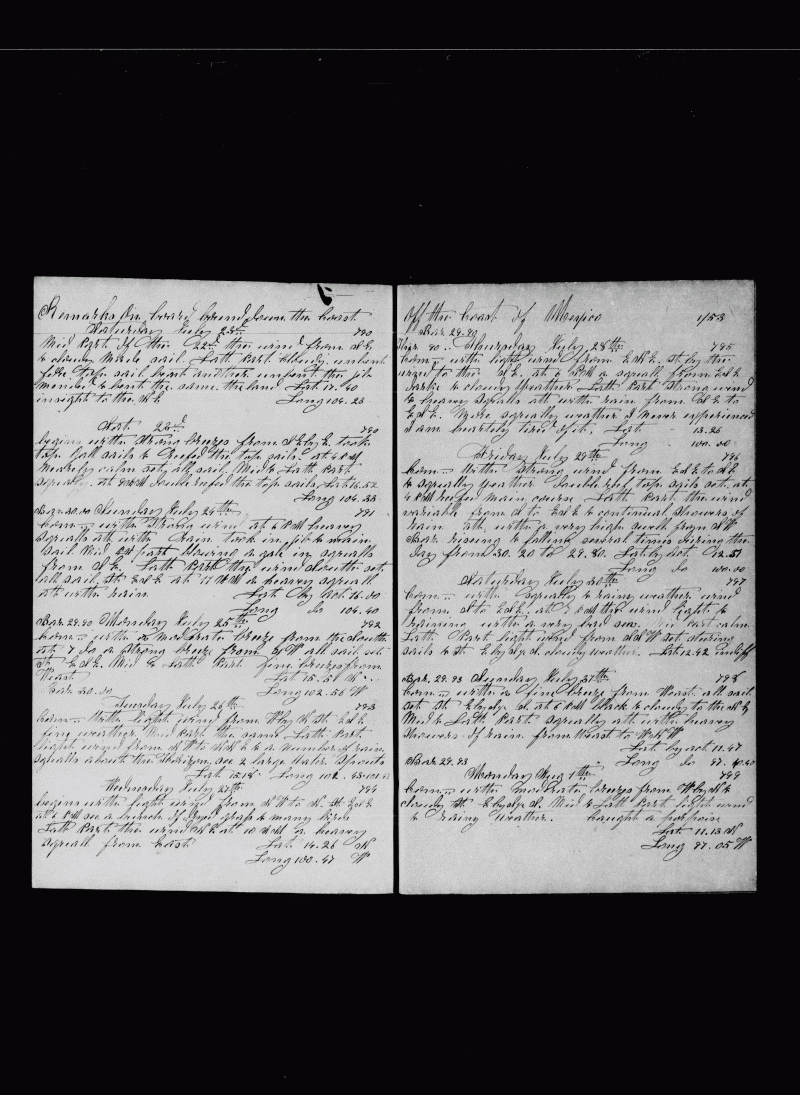 Remarks on board bound down the coast
Saturday July 23d 790
Mid Part of the 22d the wind from N E
& cloudy Made sail. Latt Part cloudy. unbent
fore top sail bent another unbent the jib
mended & bent the same. the land Lat 17.40
in sight to the N E Long 104.23
790
begins with strong breeze from S E by E. took
top Gall sails & Reefed the top sails. at 4 PM
Moderely calm set all sail. Mid & Latt Part
squaly. at double reefed the top sails. Lat 16.52
Long 104.33
Bar. 30.00 Sunday July 24th 791
com— with strong wind at 6 PM heavy
squalls att with Rain took in jib & main
sail Mid part blowing a gale in squalls
from S E. Latt Part the wind South set
all sail. St E S E at 11 AM a heavy squall
att with rain Lat by act 16.00
Long do 104.40
Bar. 29.90 Monday July 25th 792
com— with a moderate breeze from the South
at 7 do a strong breeze from S W all sail set
St E S E. Mid & Latt Part fine breeze from
West Lat 15.51 N
Bar 30.00 Long 102.56 W
Tuesday July 26th 793
com— With light wind from W by N St E S E
fine weather. Mid Part the same Latt Part
light wind from & a number of rain
squalls about the Horizon, see 2 large Water Spouts
Lat 15.18 Long 102.43
Wednesday July 27th 794
begins with light wind from N W to N. St E S E
at 6 PM see a bunch of & many birds
Latt Part the wind at 10 AM a heavy
squall from East Lat 14.26 N
Long 100.47 W
Off the coast of Mexico 153
Bar. 29.90
Ther 80 Thursday July 28th 795
com— with light wind from E S E. St by the
wind to the N E. at 6 PM a squall from E S E
Dark & cloudy Weather Latt Part Strong wind
& heavy squalls att with rain from S E to
E S E. More squally weather I never experienced
I am heartely tired of it. Lat 13.25
Long 100.00
Friday July 29th 796
com— With strong wind from E S E to S E
& squally weather double reef top sails set. at
4 PM reefed main course Latt Part the wind
variable from S to E S E & continual showers of
rain att with a very high swell from S W
Bar rising & falling several times during the
Day from 30.20 to 29.80. Lat by act 12.57
Long do 100.00
Saturday July 30th 797
com— with squally & rainy weather wind
from S to E S E. at PM the wind light &
raining with a very bad sea. Mid Part calm
Latt Part light wind from S S W set steering
sails St E by S cloudy weather. Lat 12.42
Bar. 29.93 Sunday July 31st 798
com— with a fine breeze from West all sail
set St E by S at 6 PM black & cloudy to the N E
Mid & Latt Part squally att with heavy
showers of rain from West to
Lat by act 11.47
Bar 29.93 Long do 97.40
Monday Aug 1st 799
com— with moderate breeze from W by N &
cloudy St E by S. Mid & Latt Part light wind
& rainy Weather. Caught a porpois
Lat 11.13 N
Long 97.05 W